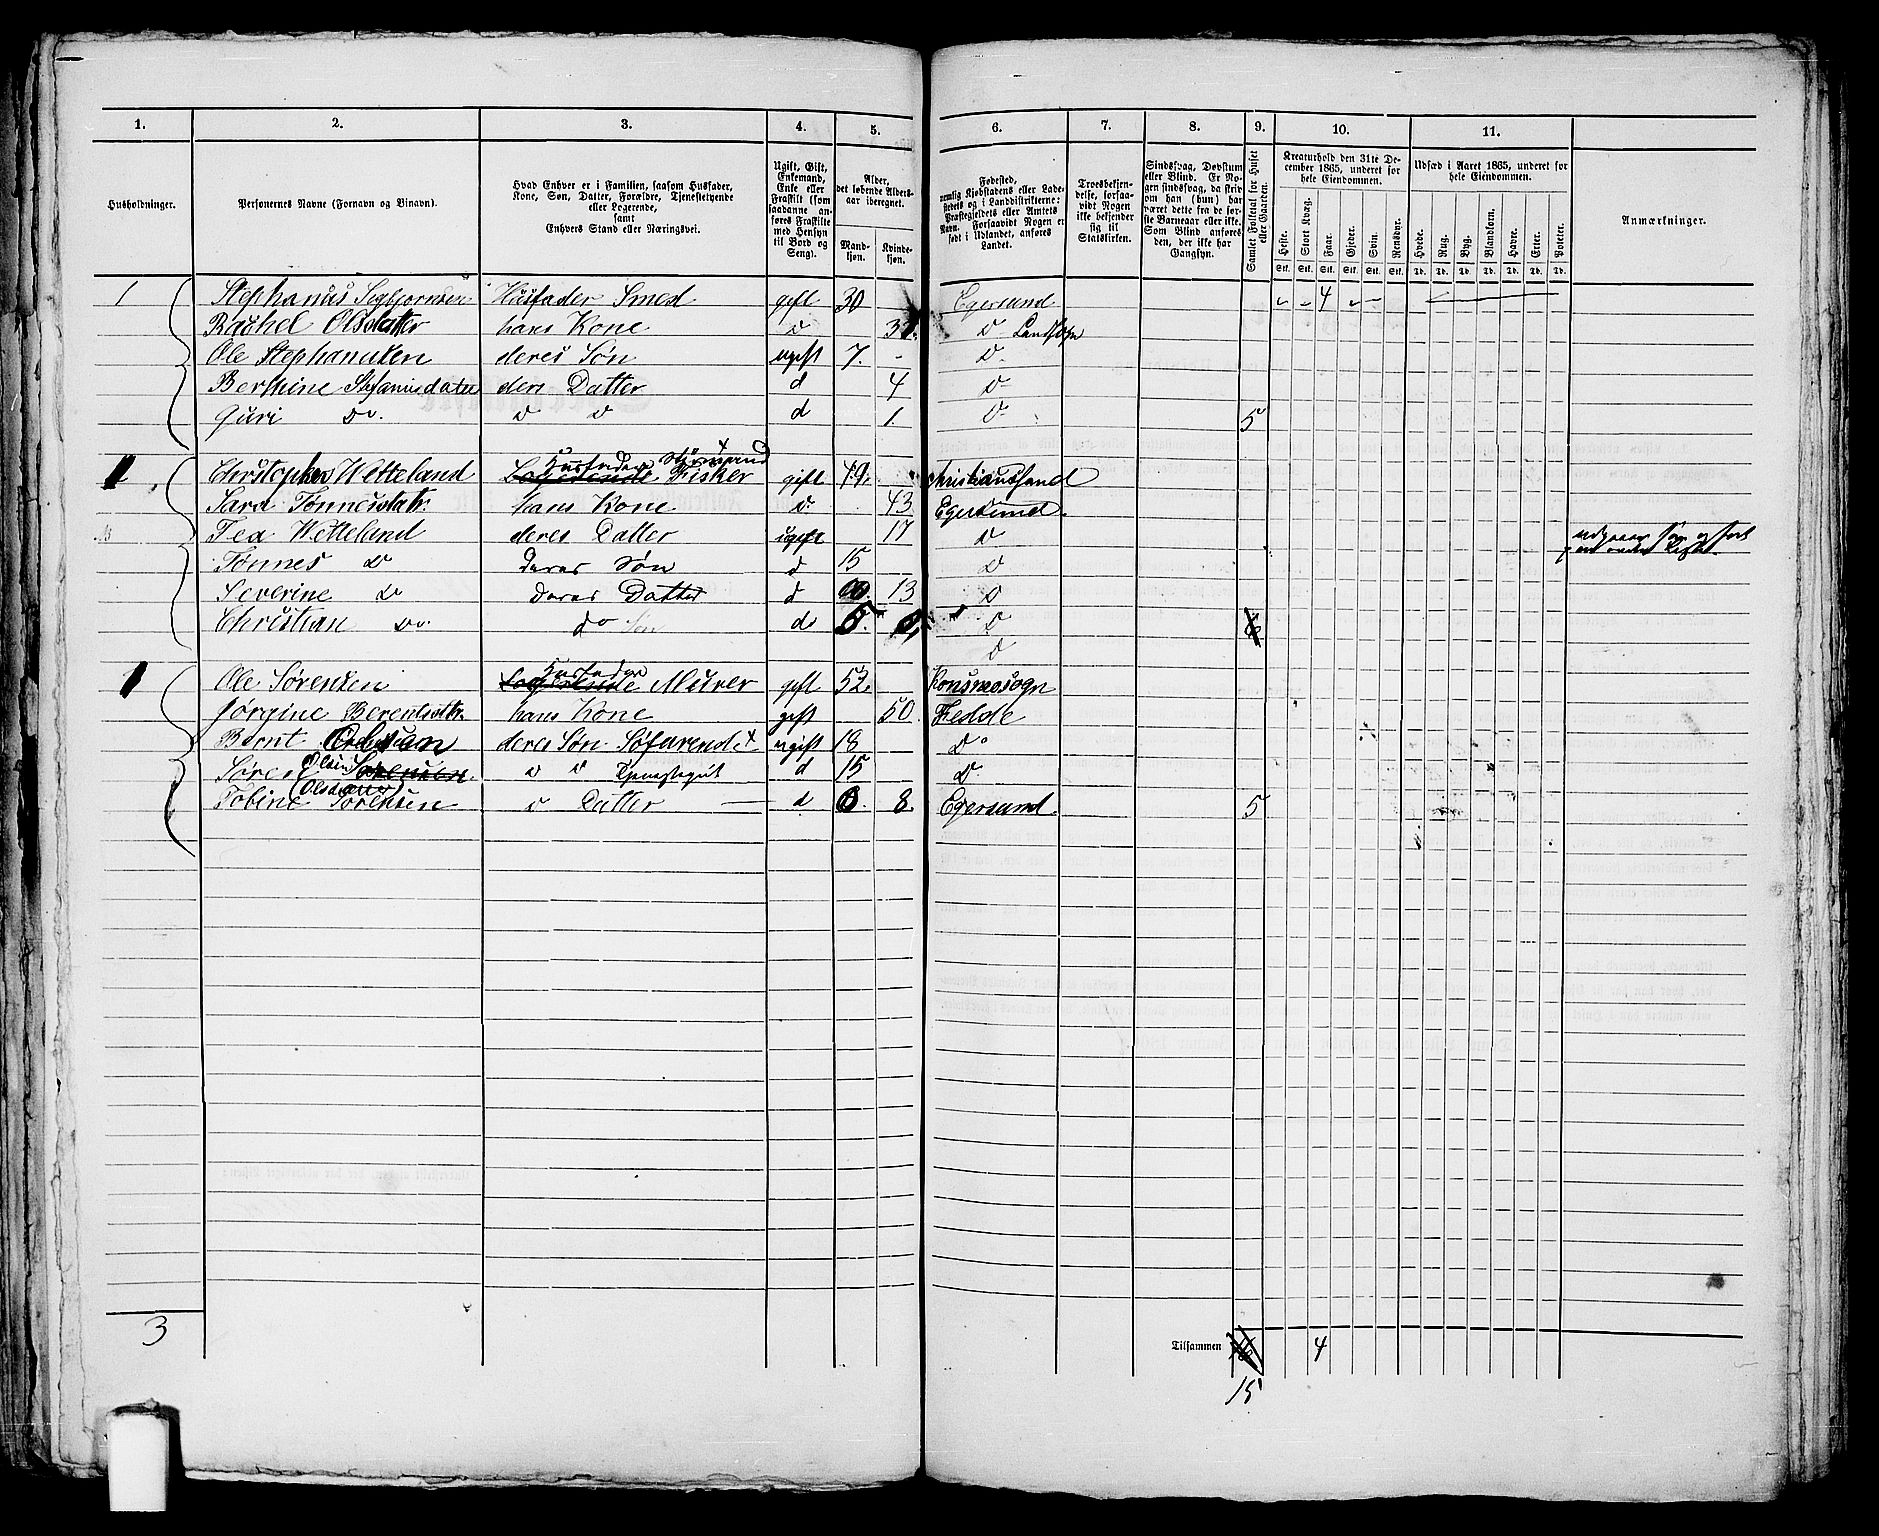 1. 2. 3. 4. 5. 6. 7. 8. 9. 10. 11.
Husholdninger.
Personernes Navne (Fornavn og Binavn).
Hvad Enhver er i Familien, saasom Husfader, Kone, Søn, Datter, Forældre, Tjenestetyende eller Logerende, samt Enhvers Stand eller Næringsvei.
Ugift, Gift, Enkemand, Enke eller Fraskilt (som saadanne anføres Fraskilte med Hensyn til Bord og Seng).
Alder, det løbende Alders-aar iberegnet.
Mand-kjøn. Kvinde-kjøn.
Fødested, nemlig Kjøbstadens eller Ladestedets og i Landdistrikterne: Præstegjeldets eller Amtets Navn. Forsaavidt Nogen er født i Udlandet, anføres Landet.
Troesbekjendelse, forsaavidt Nogen ikke bekjender sig til Statskirken.
Sindssvag, Døvstum eller Blind. Er Nogen sindssvag, da skrives om han (hun) har været dette fra de første Barneaar eller ikke. Som Blind anføres den, der ikke har Gangsyn.
Samlet Folketal for Huset eller Gaarden.
Kreaturhold den 31te December 1865, underet for hele Eiendommen.
Heste. Stort Kvæg. Faar. Gjeder. Svin. Rensdyr.
Stk. Stk. Stk. Stk. Stk. Stk.
Udsæd i Aaret 1865, underet for hele Eiendommen.
Hvede. Rug. Byg. Blandkorn. Havre. Erter. Poteter.
Td. Td. Td. Td. Td. Td. Td.
Anmærkninger.
1 Stephanus Sigbjornsen Husfader Smed gift 30 Egersund 4
Rachel Olsdatter hans Kone do do Landsogn
Ole Stephansen deres Søn ugift 7. do
Berthine Stefanusdatter deres Datter d 4 do
Guri Do. do do d 1. do 5
1 Christopher Wetteland Logerende Husfader Styrmand Fisker gift 49. Christianssand
Sara Tønnesdatr. hans Kone do. 43 Egersund
Tea Wetteland deres Datter ugift 17 do
Tønnes Do Deres Søn d 15 do
Severine Do Deres Datter d 13 do
Christian Do. do Søn d 5. do 6
do
1 Ole Sørensen Logerende Husfader Murer gift 52. Konsmosogn
Jørgine Berentsdtr. hans Kone gift 50. Fedde
Bernt Olsen deres Søn Søfarende ugift 18 Do
Søren Olsen Sørensen do do d 15 Do.
Tobine (Olsdatter) Sørensen do Datter d 8. Egersund 5
3
Tilsammen 4
15